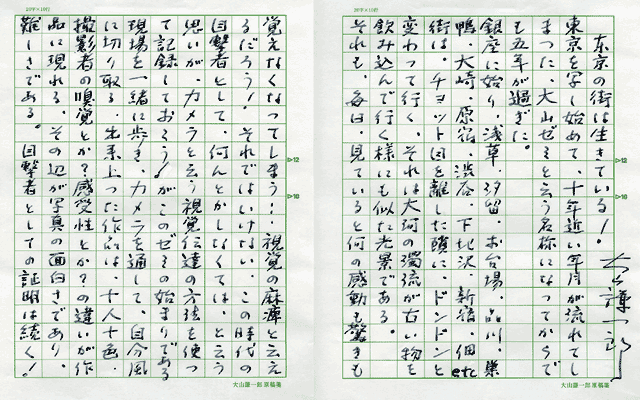 20字×10行
東京の街は生きている！
大山謙一郎
東京を写し始めて、十年近い年月が流れてし
まつた、大山ゼミと云う名称になってからで
も五年が過ぎた。
銀座に始り、浅草、汐留、お台場、品川、巣
鴨、大崎、原宿、渋谷、下北沢、新宿、佃etc
街は、チョット目を離した隙に、ドンドンと
変わって行く、それは大河の濁流が古い物を
飲み込んで行く様にも似た光景である。
それも、毎日、見ていると何の感動も驚きも
大山謙一郎 原稿箋
20字×10行
覚えなくなってしまう…視覚の麻痺と云え
るだろう！それではいけない、この時代の
目撃者として、何んとかしなくては、と云う
思いが、カメラと云う視覚伝達の方法を使っ
て記録しておこう！がこのゼミの始まりである
現場を一緒に歩き、カメラを通して、自分風
に切り取る、出来上った作品は、十人十画、
撮影者の嗅覚とか？感受性とか？の違いが作
品に現れる、その辺が写真の面白さであり、
難しさである。目撃者としての証明は続く！
▷12
▷10
▷12
▷10
大山謙一郎 原稿箋